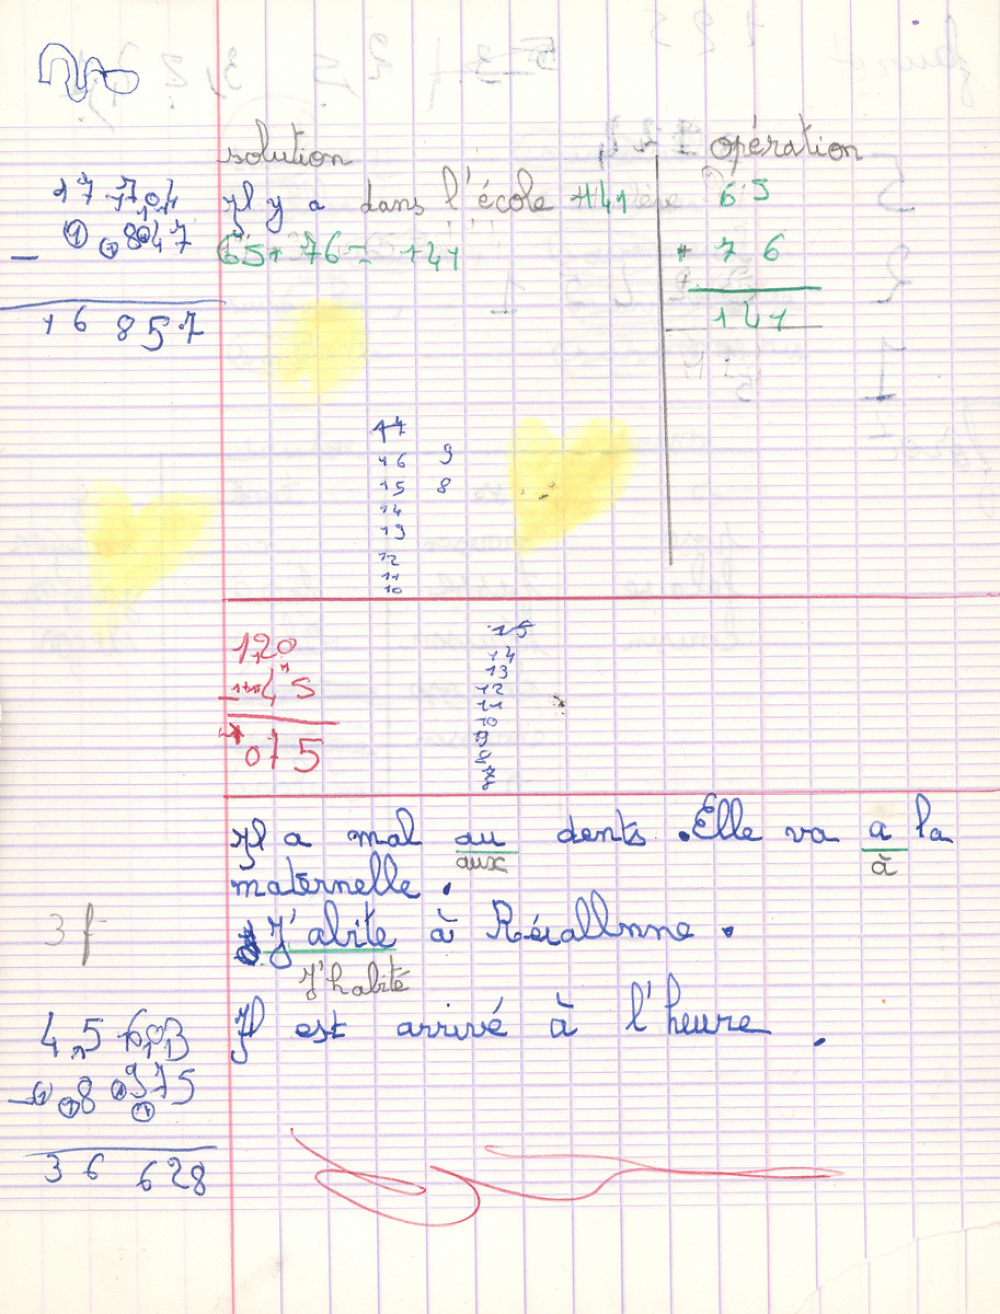 solution opération
17 704 Il y a dans l'école 141 65
- 8 847 65+76= 141 + 76
16 857 141
17
16 9
15 8
14
13
12
11
10
120 15
- 45 14
075 13
12
11
10
9
8
7
Il a mal au dents. Elle va a la
aux à
maternelle.
J'abite à
3 f
J'habite
45 603 Il est arrivé à l'heure.
- 8 975
36 628